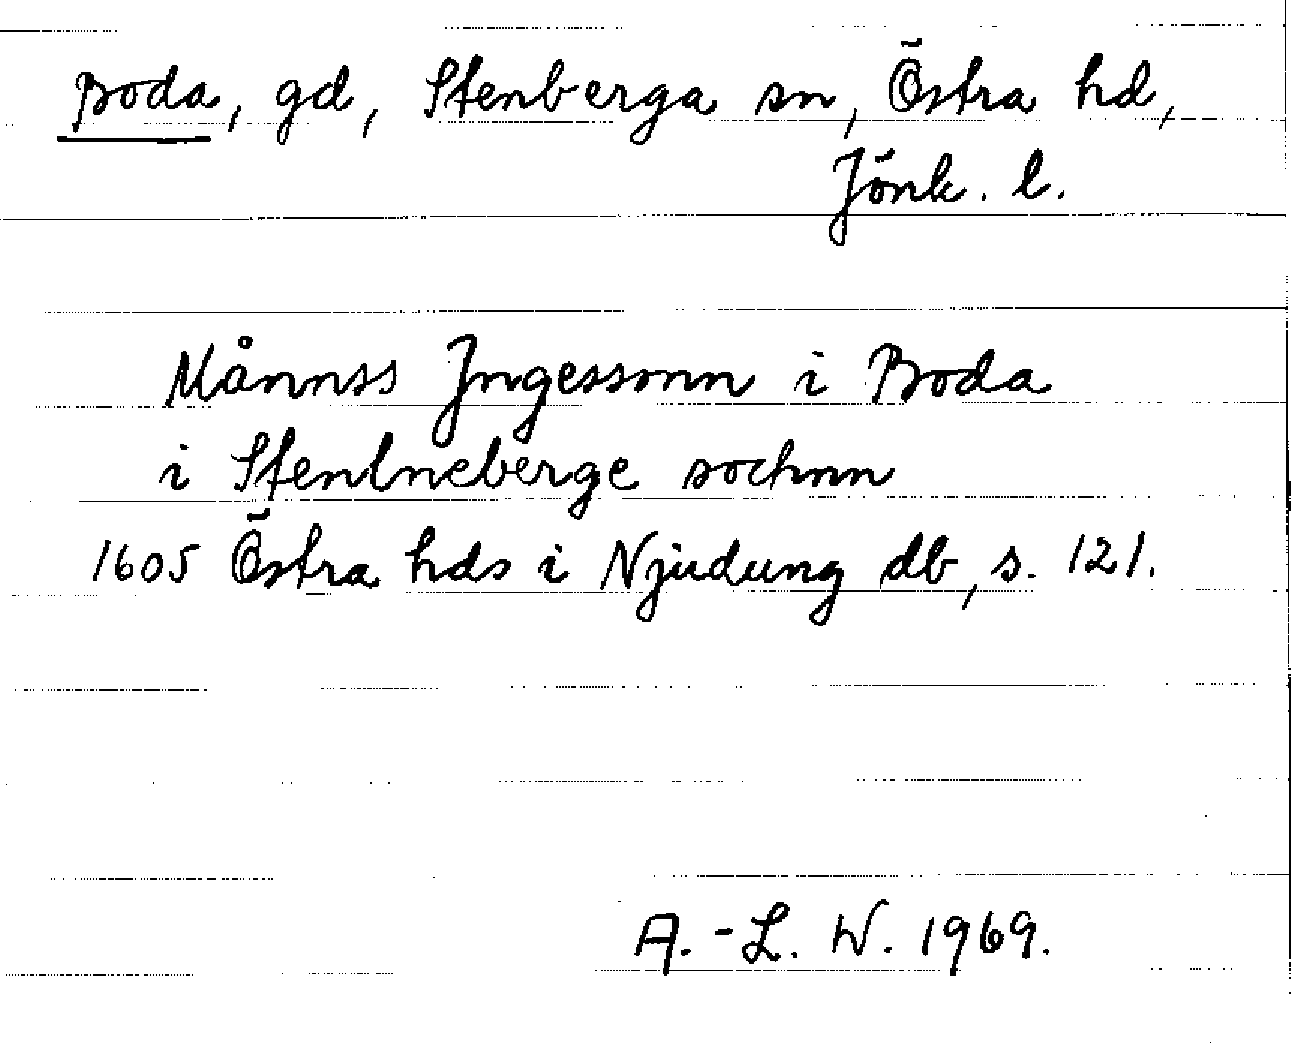 Boda, gd, Stenberga sn, Östra hd,
Jönk. l.
Månnss Jngessonn i Boda
i Stenlneberge sochnn
1605 Östra hds i Njudung db, s. 121.
A.-L. W. 1969.